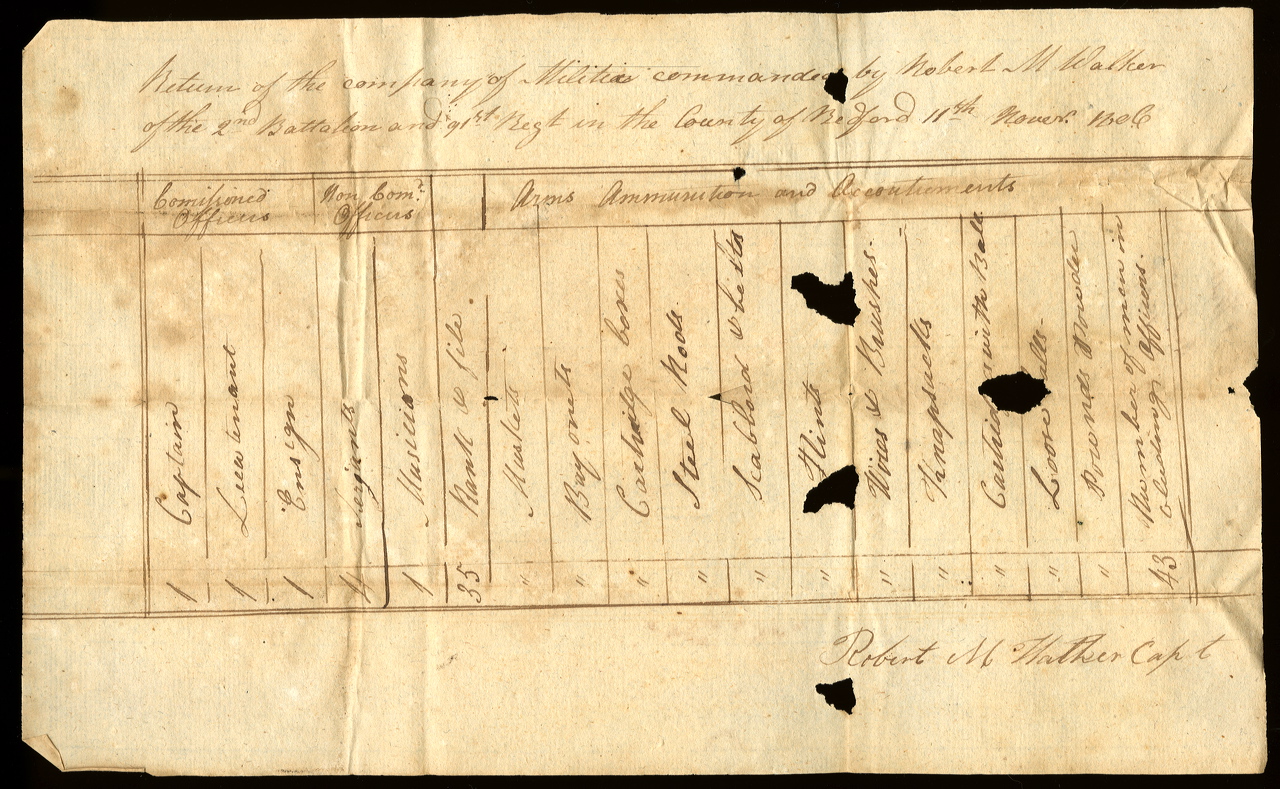 Return of the company of Militia commanded by Robert M Walker
of the 2nd Battalion and 91st Regt in the County of Bedford 11th Novem. 1806
Comisioned
Officers
Non Comd.
Officers
Arms Ammunition and Accoutrements
Captain
Lieuetenant
Ensign
Serjants
Musicions
Rank & file
Muskets
Bayonets
Cartridge boxes
Steel Rods
Scabbord & belts
Flints
Wires & Brushes.
Knapsacks
with Ball
Loose
Pownds Powder
Number of men in
cluding Officers.
1 1 1 4 1 35 " " " " " " " " " " " 43
Robert M Walker Capt